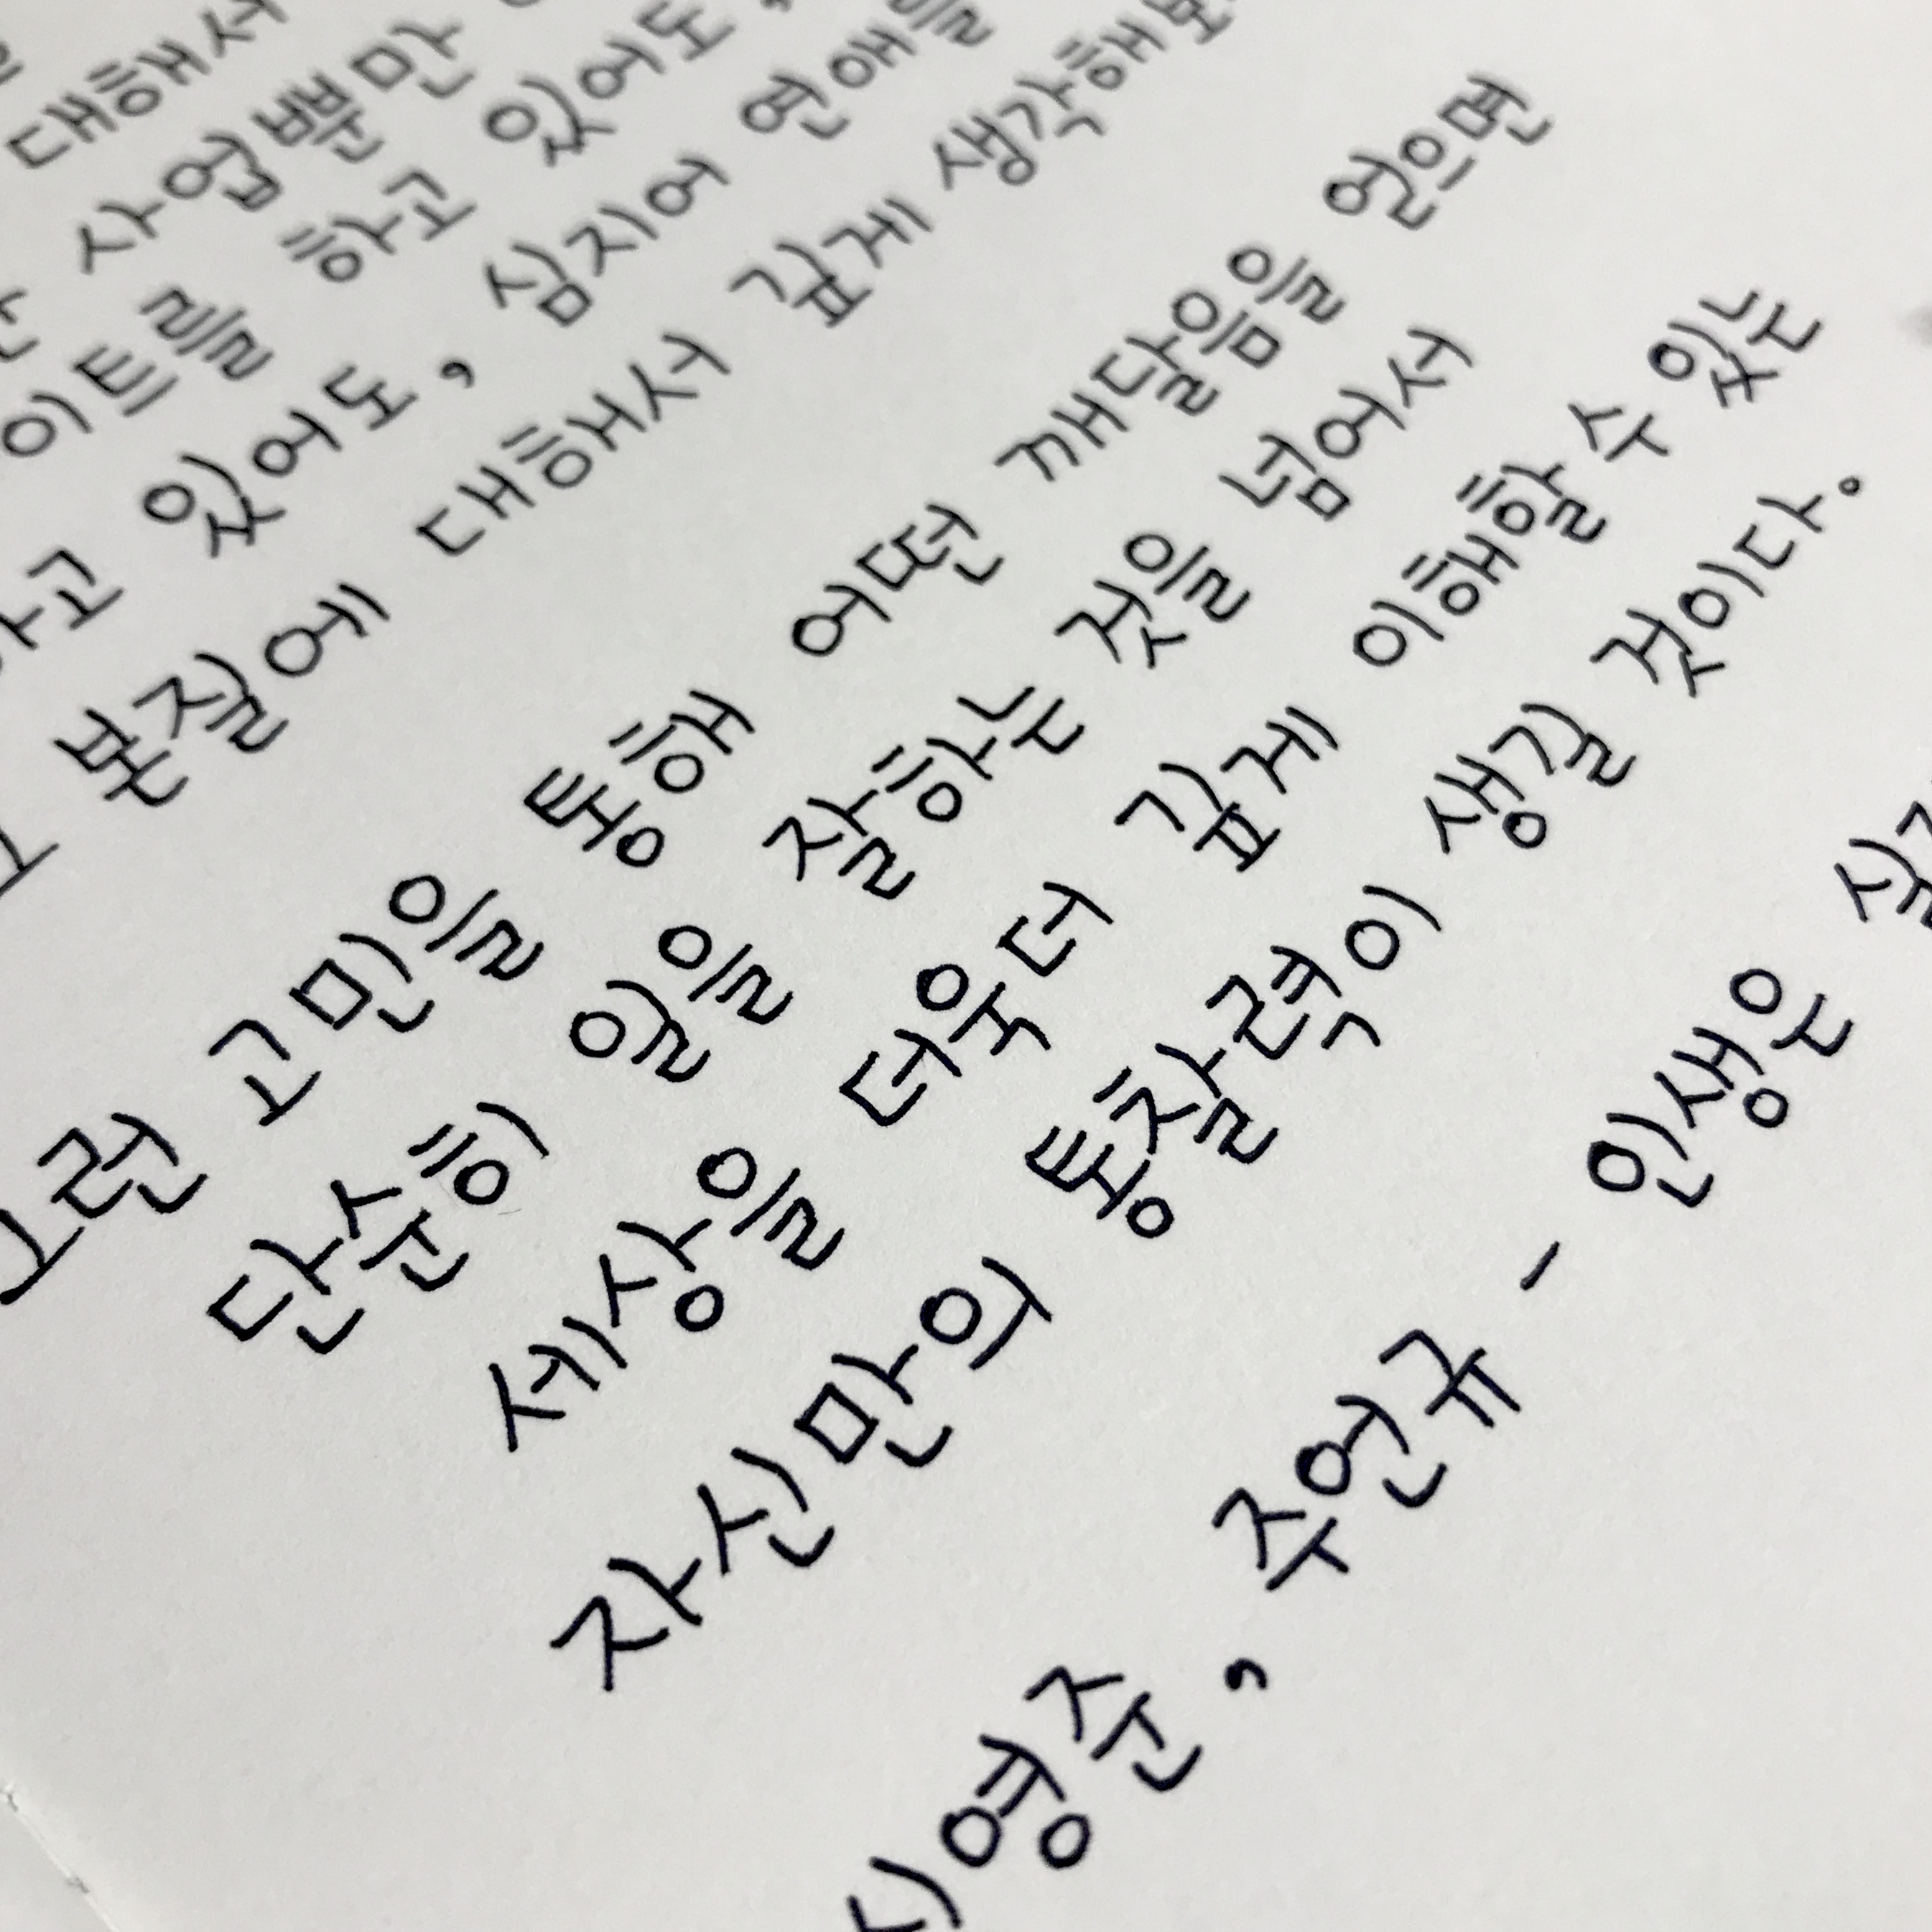 대해서
사업뿐만
이트를 하고 있어도,
하고 있어도, 심지어 연애를
본질에 대해서 깊게 생각해보
그런 고민을 통해 어떤 깨달음을 얻으면
단순히 일을 잘하는 것을 넘어서
세상을 더욱더 깊게 이해할 수 있는
자신만의 통찰력이 생길 것이다.
신영준, 주언규 - 인생은 실